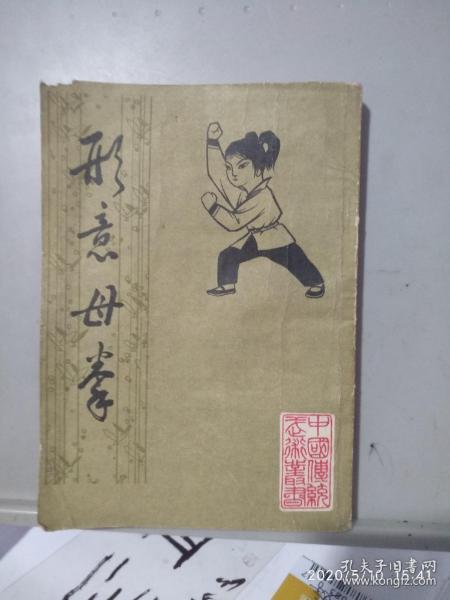 形意母拳
中國傳統
武術叢書
2020/5/10 15:41
孔夫子旧书网